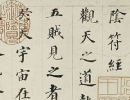 陰符經
觀天之道執
五賊見之者
於天宇宙在